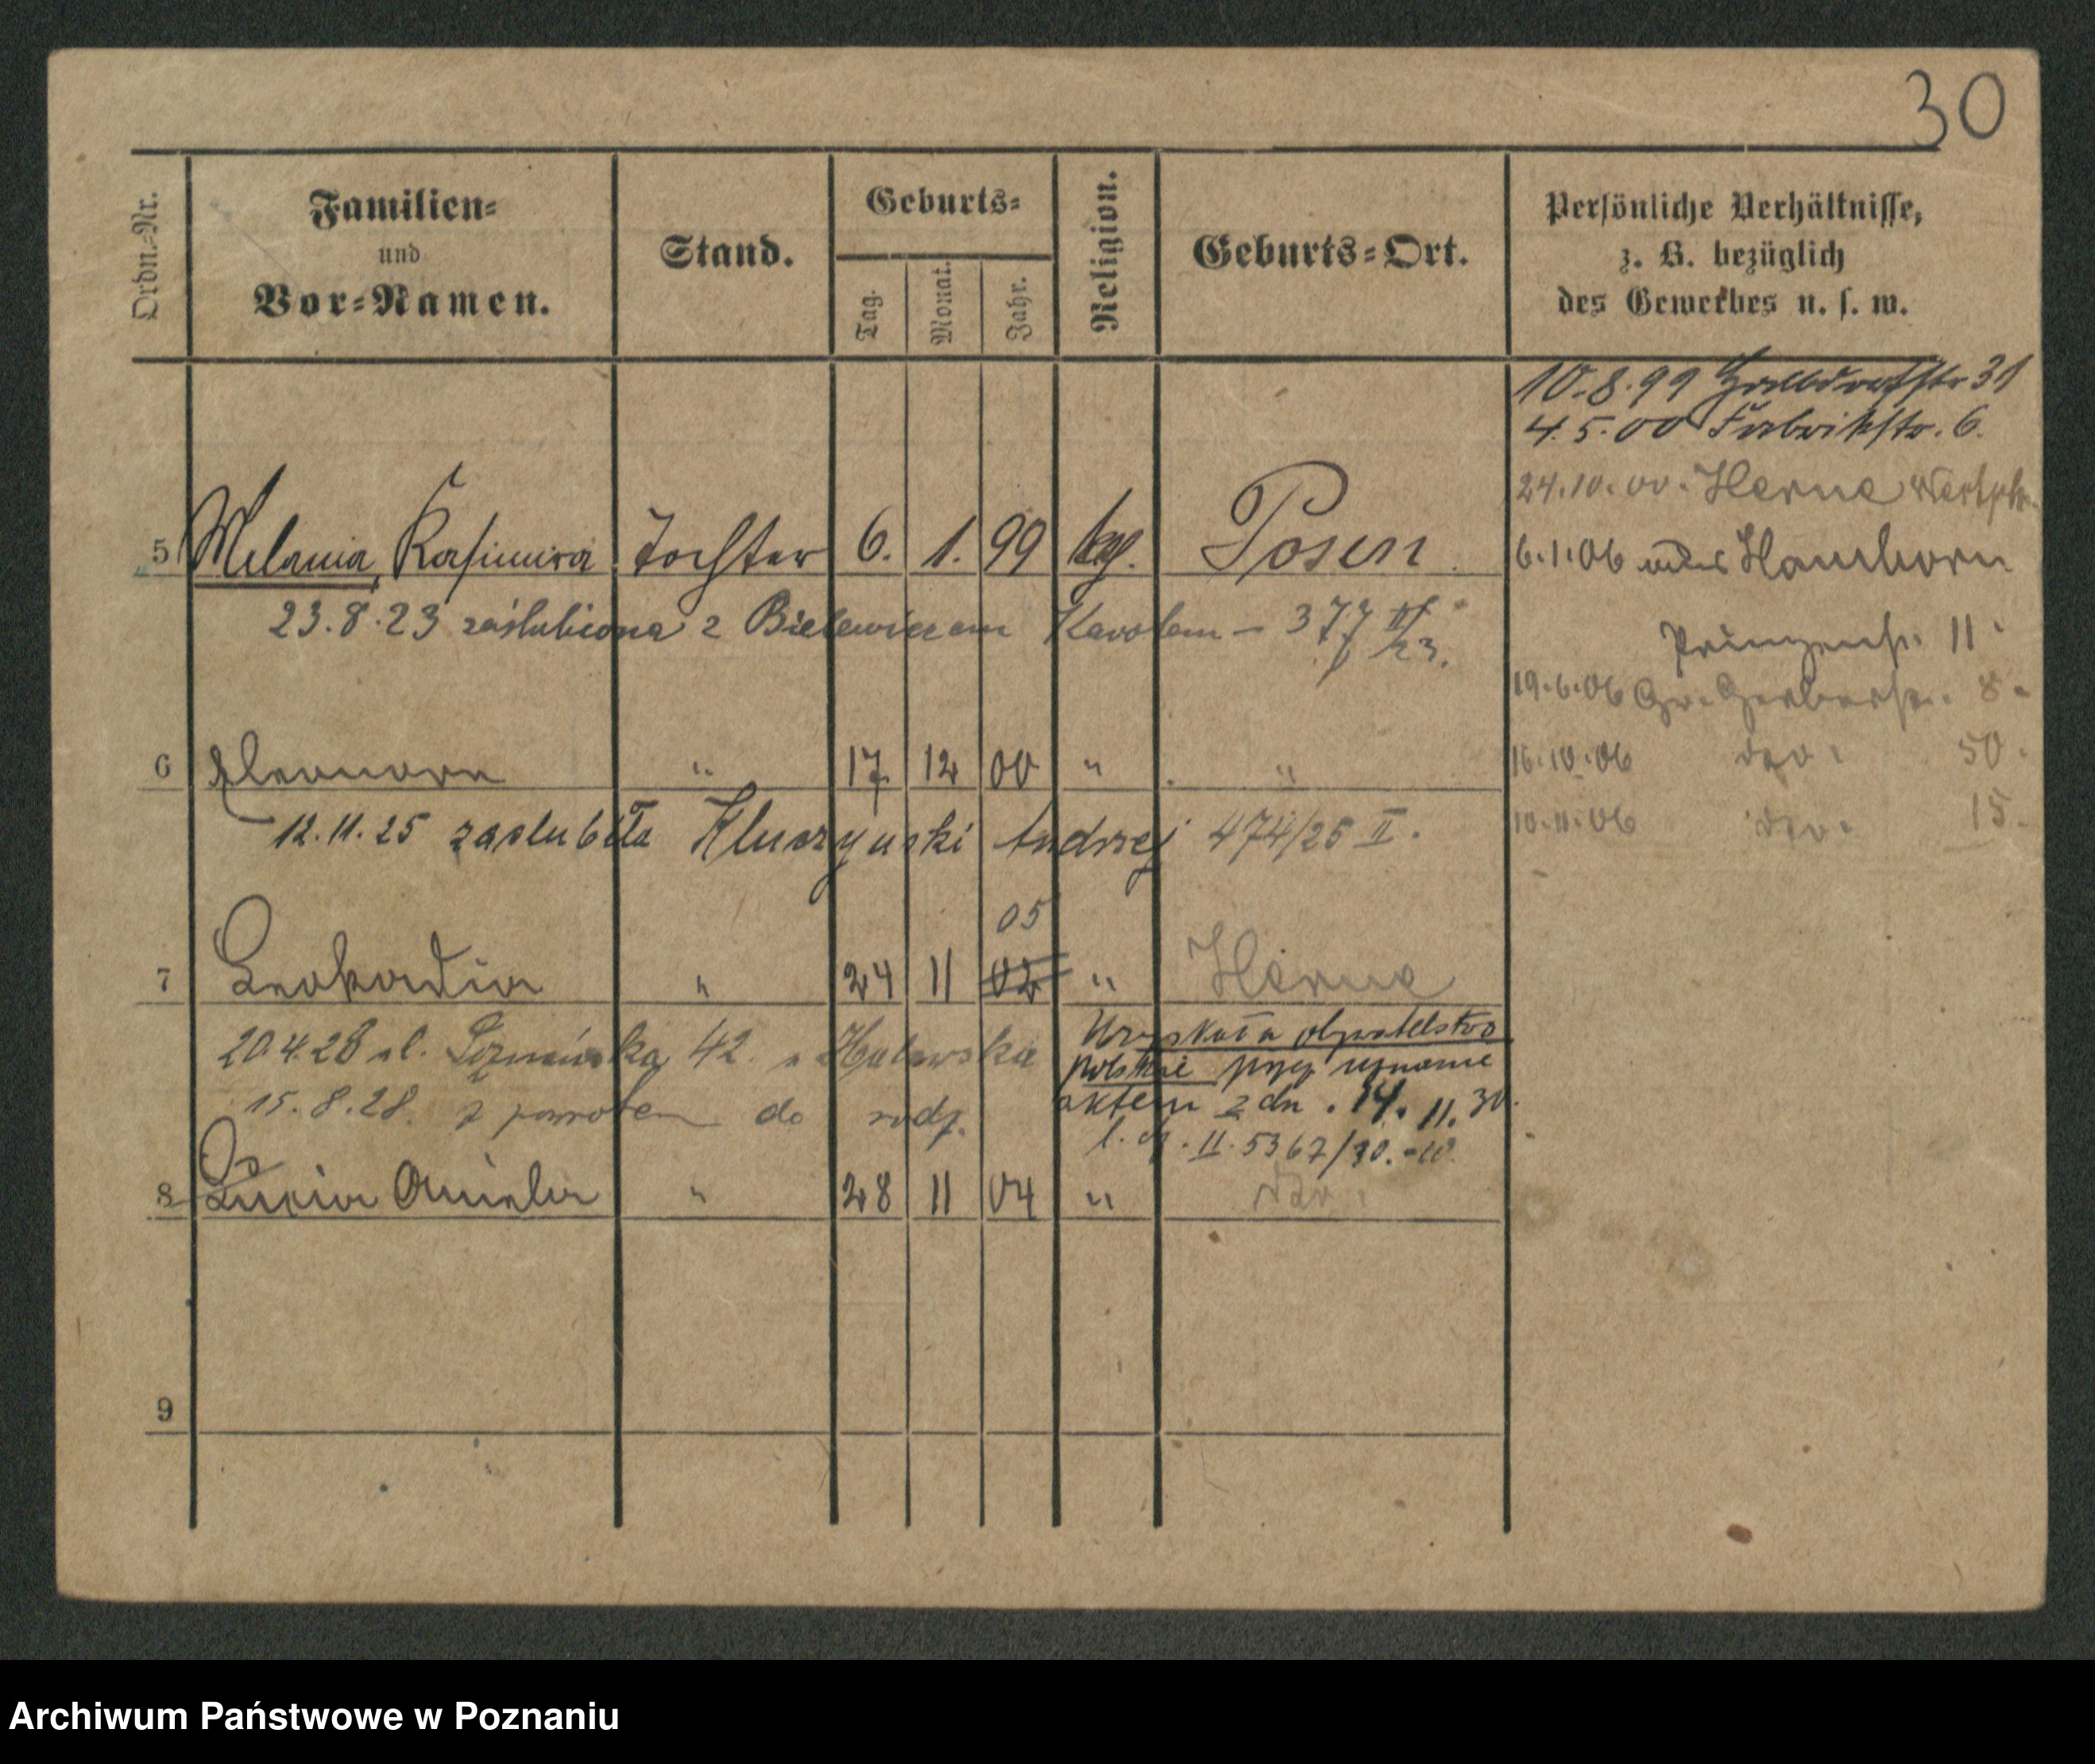 30
Ordn.-Nr.
Familien-
und
Vor-Namen.
Stand.
Geburts-
Tag.
Monat.
Jahr.
Religion.
Geburts-Ort.
Persönliche Verhältnisse,
z. B. bezüglich
des Gewerbes u. s. w.
10.8.99 31
4.5.00 Fabrikstr. 6.
24.10.00. Herne Westph.
5 Melania, Kasimira Tochter 6. 1. 99 kg. Posen
6.1.06 Hamborn
23.8.23 zaślubiona z Bielewiczem Karolem – 377 II/23.
Prinzenstr. 11
19.6.06 Gr. Gerberstr. 8
6 Eleonora " 17 12 00 " "
16.10.06 dto. 50.
12.11.25 zaślubiła Kluczynski Andrzej 474/25 II.
10.11.06 dto. 15.
05
7 Leokadia " 24 11 02 " Herne
20.4.28 ul. 42.
Uzyskała obywatelstwo
polskie przez uznanie
15.8.28. z powrotem do rodz.
aktem z dn. 14. 11. 30.
II. 5367/30.
8 Lucia Aniela " 28 11 04 " dto.
9
Archiwum Państwowe w Poznaniu